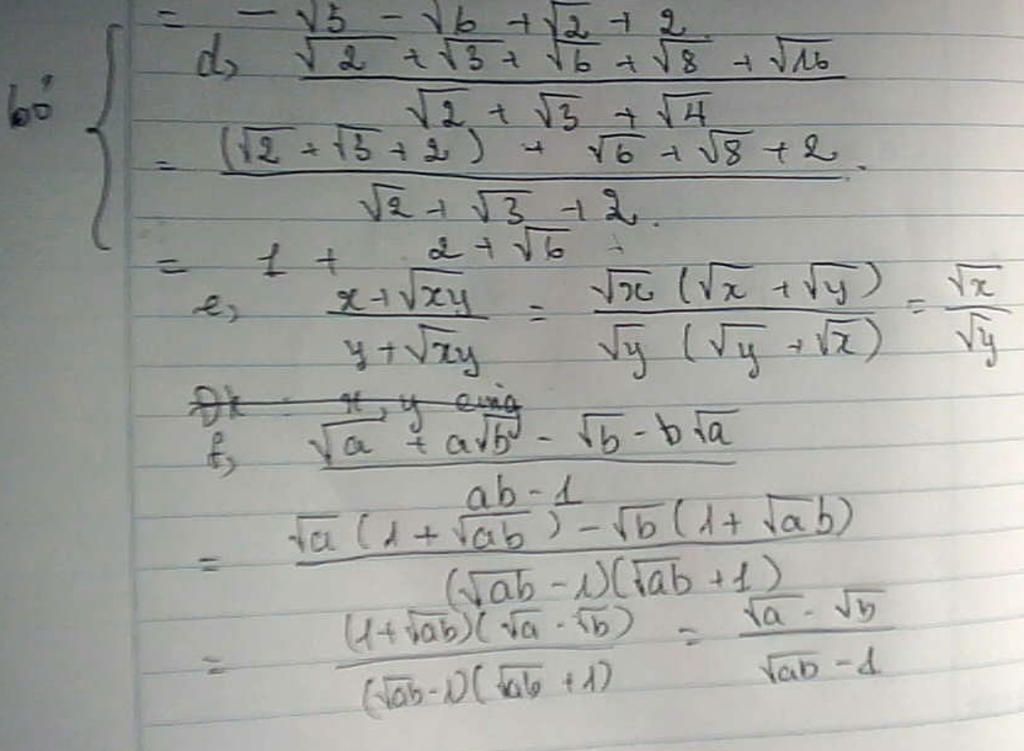 = - √3 - √6 + √2 + 2
bỏ { d, (√2 + √3 + √6 + √8 + √16) / (√2 + √3 + √4)
= ((√2 + √3 + 2) + √6 + √8 + 2) / (√2 + √3 + 2).
= 1 + 2 + √6
e, (x + √xy) / (y + √xy) = (√x (√x + √y)) / (√y (√y + √x)) = √x / √y
f, (√a + a√b - √b - b√a) / (ab - 1)
= (√a (1 + √ab) - √b (1 + √ab)) / ((√ab - 1)(√ab + 1))
= ((1 + √ab)(√a - √b)) / ((√ab - 1)(√ab + 1)) = (√a - √b) / (√ab - 1)